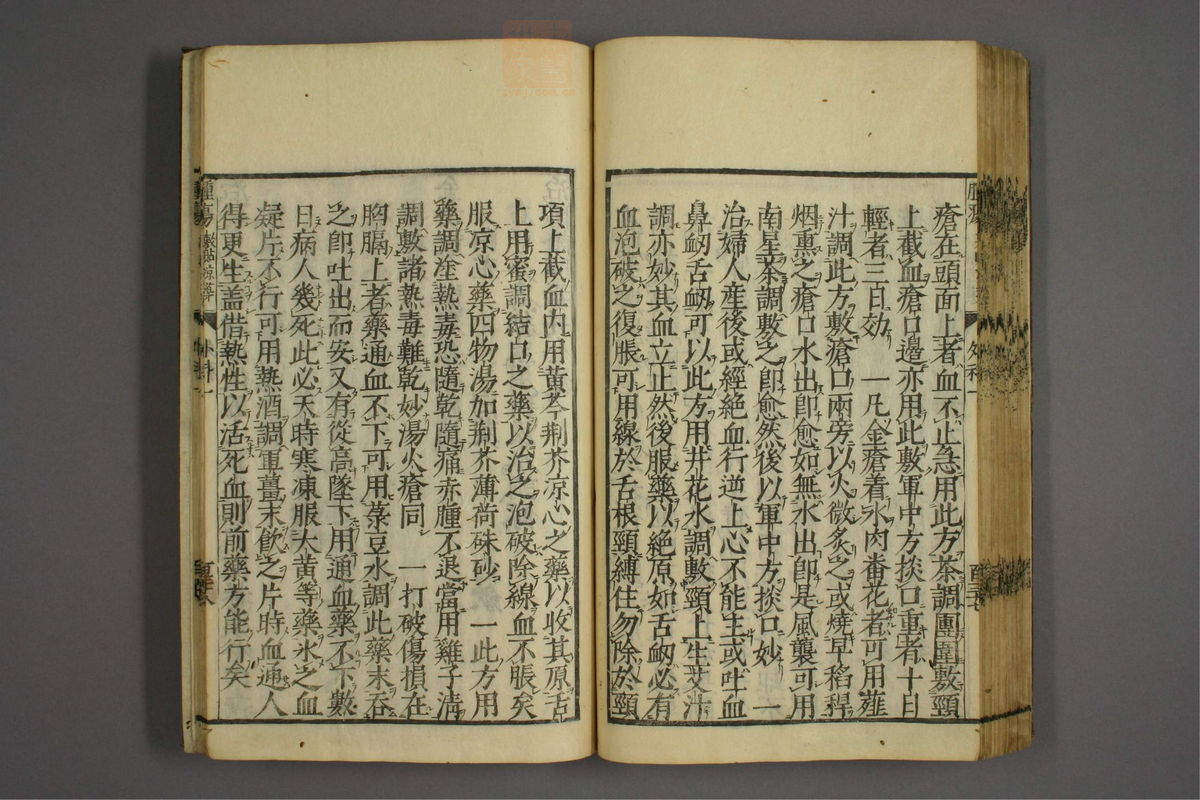 瘡在頭面上者血不止急用此方茶調團圍敷頸
上截血瘡口邊亦用此敷軍中方掞口重者十日
輕者三日効　一凡金瘡着水肉番花者可用薤
汁調此方敷瘡口兩旁以火微炙之或燒早稻稈
烟熏之瘡口水出即愈如無水出即是風襲可用
南星茶調敷之即愈然後以軍中方掞口妙　一
治婦人產後或經絶血行逆上心不能生或吐血
鼻衂舌衂可以此方用井花水調敷頸上生艾汁
調亦妙其血立止然後服藥以絶原如舌衂必有
血泡破之復脹可用線於舌根頸縛住勿除於頸
項上截血內用黃芩荆芥凉心之藥以收其原舌
上用蜜調結口之藥以治之泡破除線血不脹矣
服凉心藥四物湯加荆芥薄荷硃砂　一此方用
藥調塗熱毒恐隨乾隨痛赤腫不退當用雞子清
調敷諸熱毒難乾妙湯火瘡同　一打破傷損在
胸膈上者藥通血不下可用菉豆水調此藥末吞
之即吐出而安又有從高墜下用通血藥不下數
日病人幾死此必天時寒凍服大黃等藥氷之血
凝片不行可用熱酒調軍薑末飲之片時血通人
得更生盖借熱性以活死血則前藥方能行矣